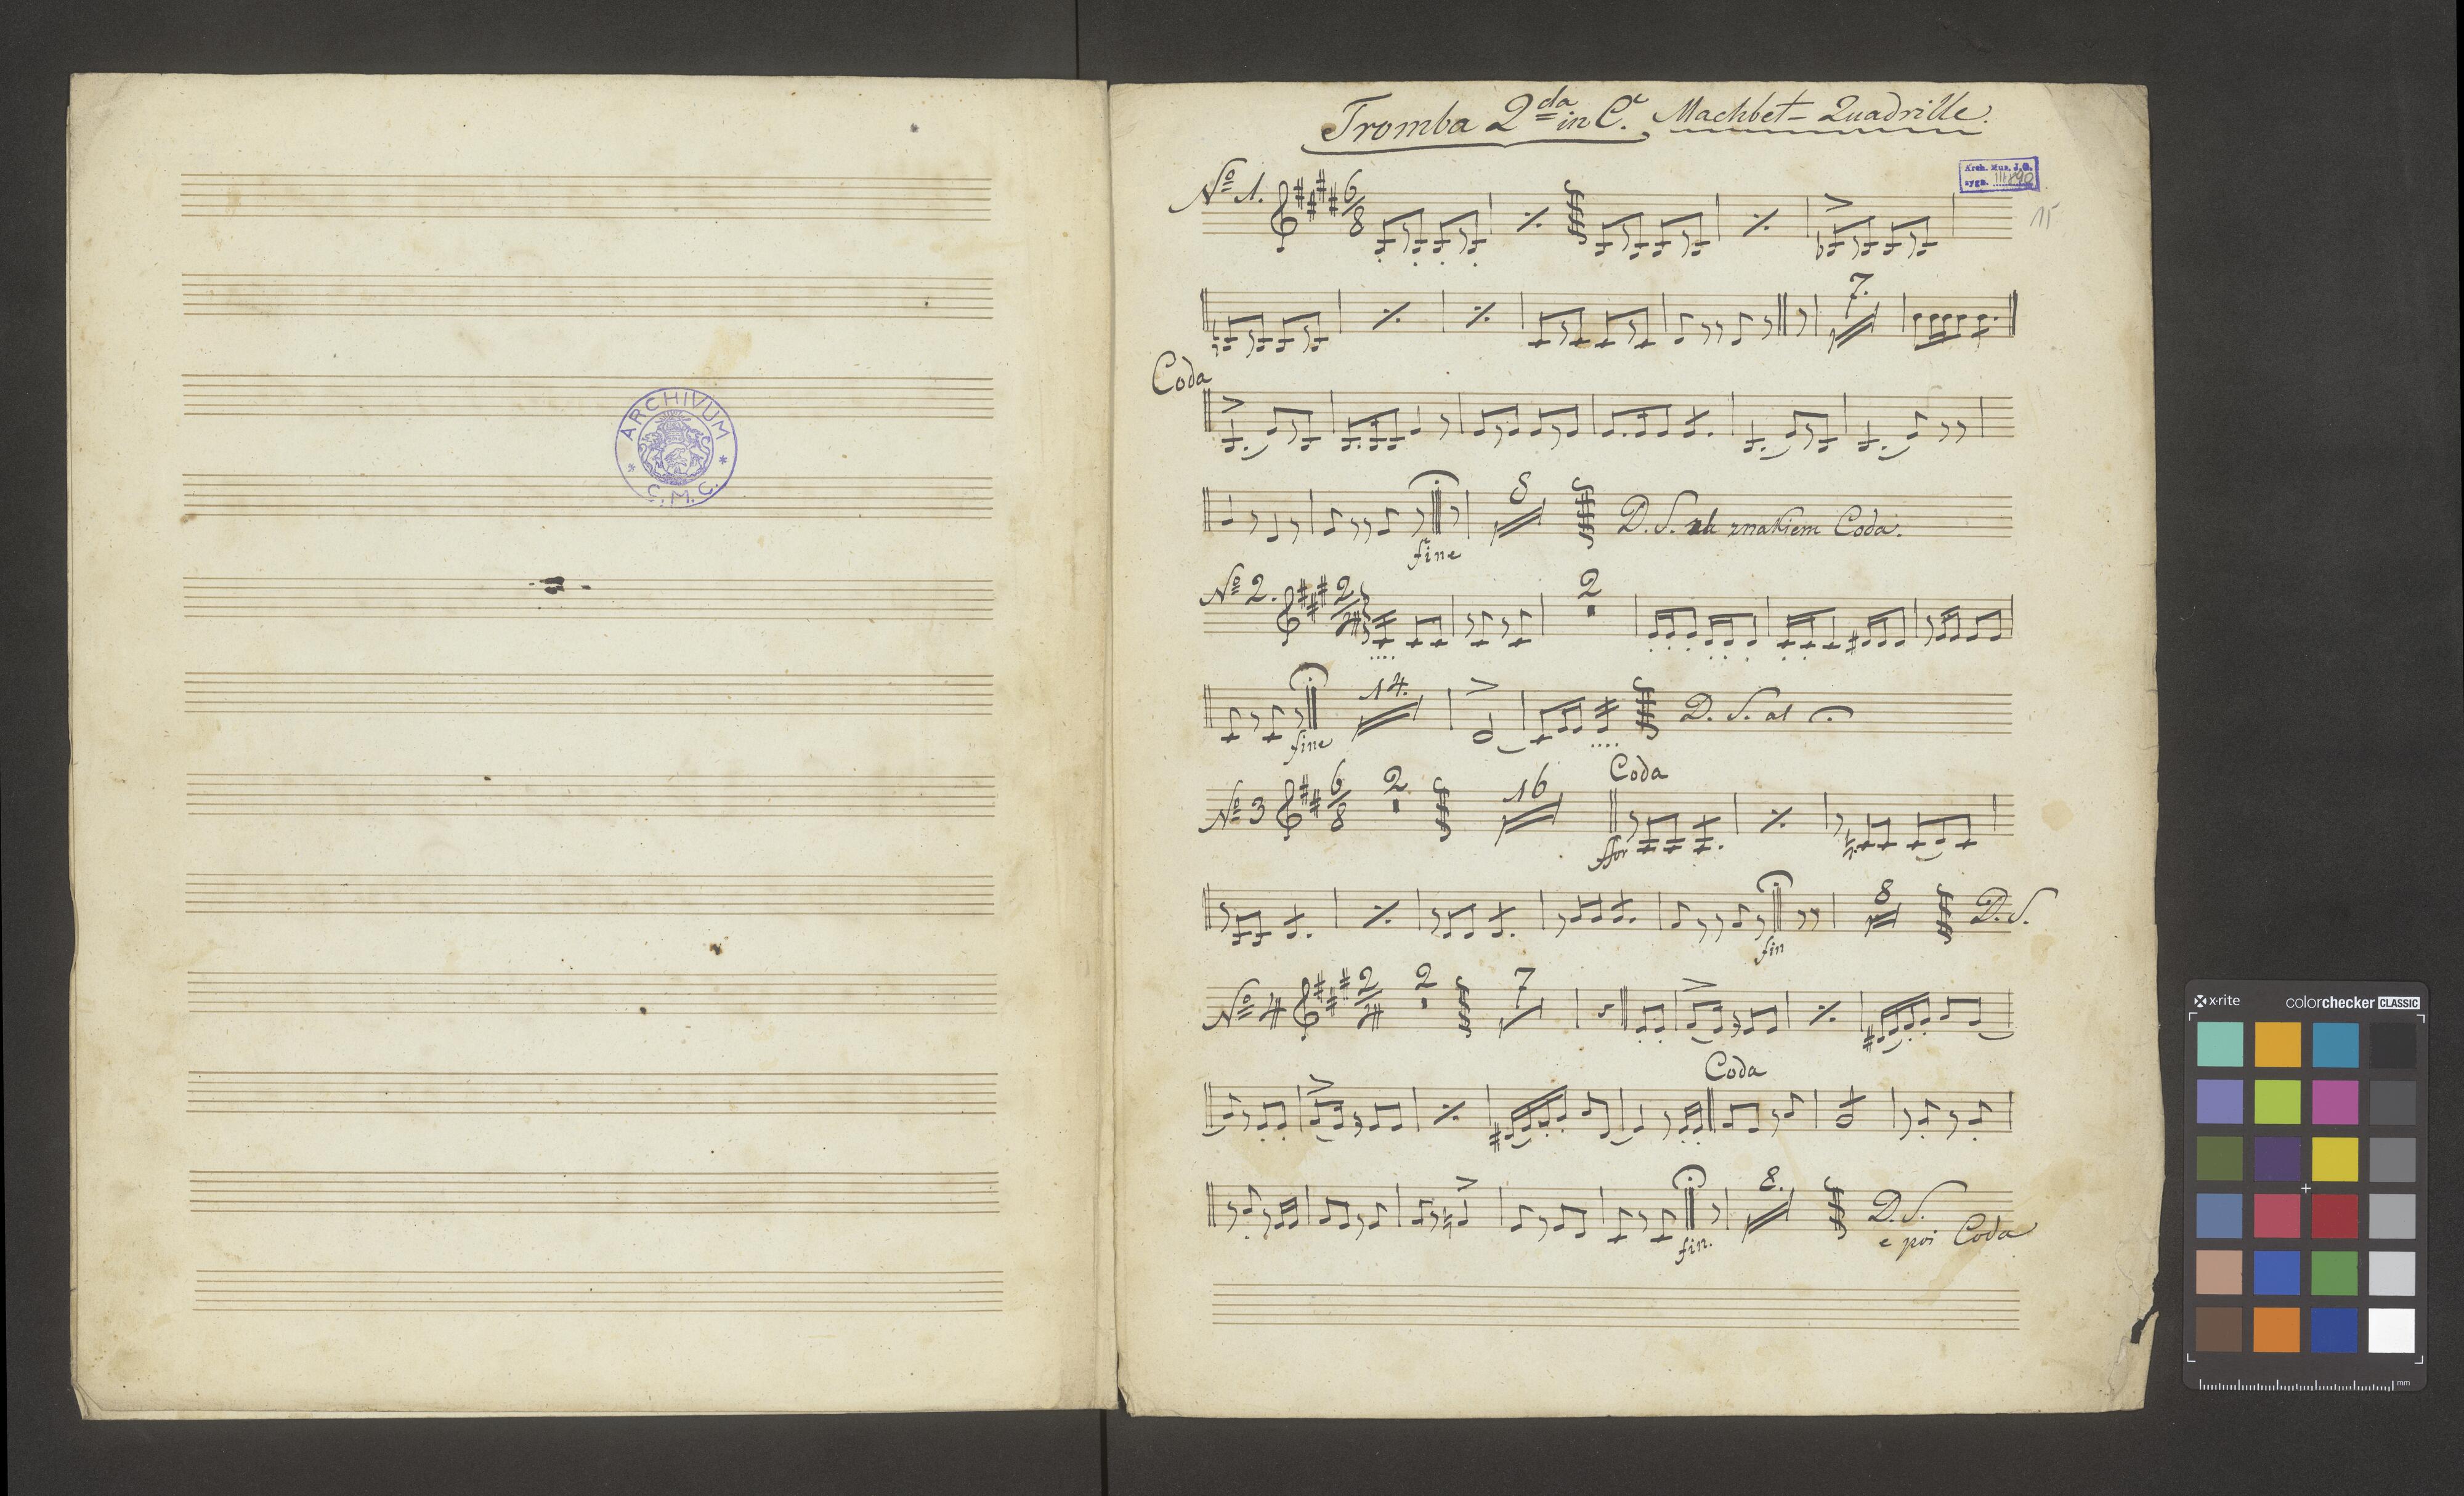 ARCHIVUM
C.M.C.
Tromba 2da in C. Machbet-Quadrille.
Arch. Muz. J.G.
sygn.
15
No 1. 6/8
7.
Coda
8
fine
D.S. znakiem Coda.
No 2. 2/4 2
14.
fine
D. S. al
Coda
No 3 6/8 2 16
ffor
8 D.S.
fin
No 4 2/4 2 7
Coda
8. D.S.
fin. e poi Coda
x-rite colorchecker CLASSIC
mm